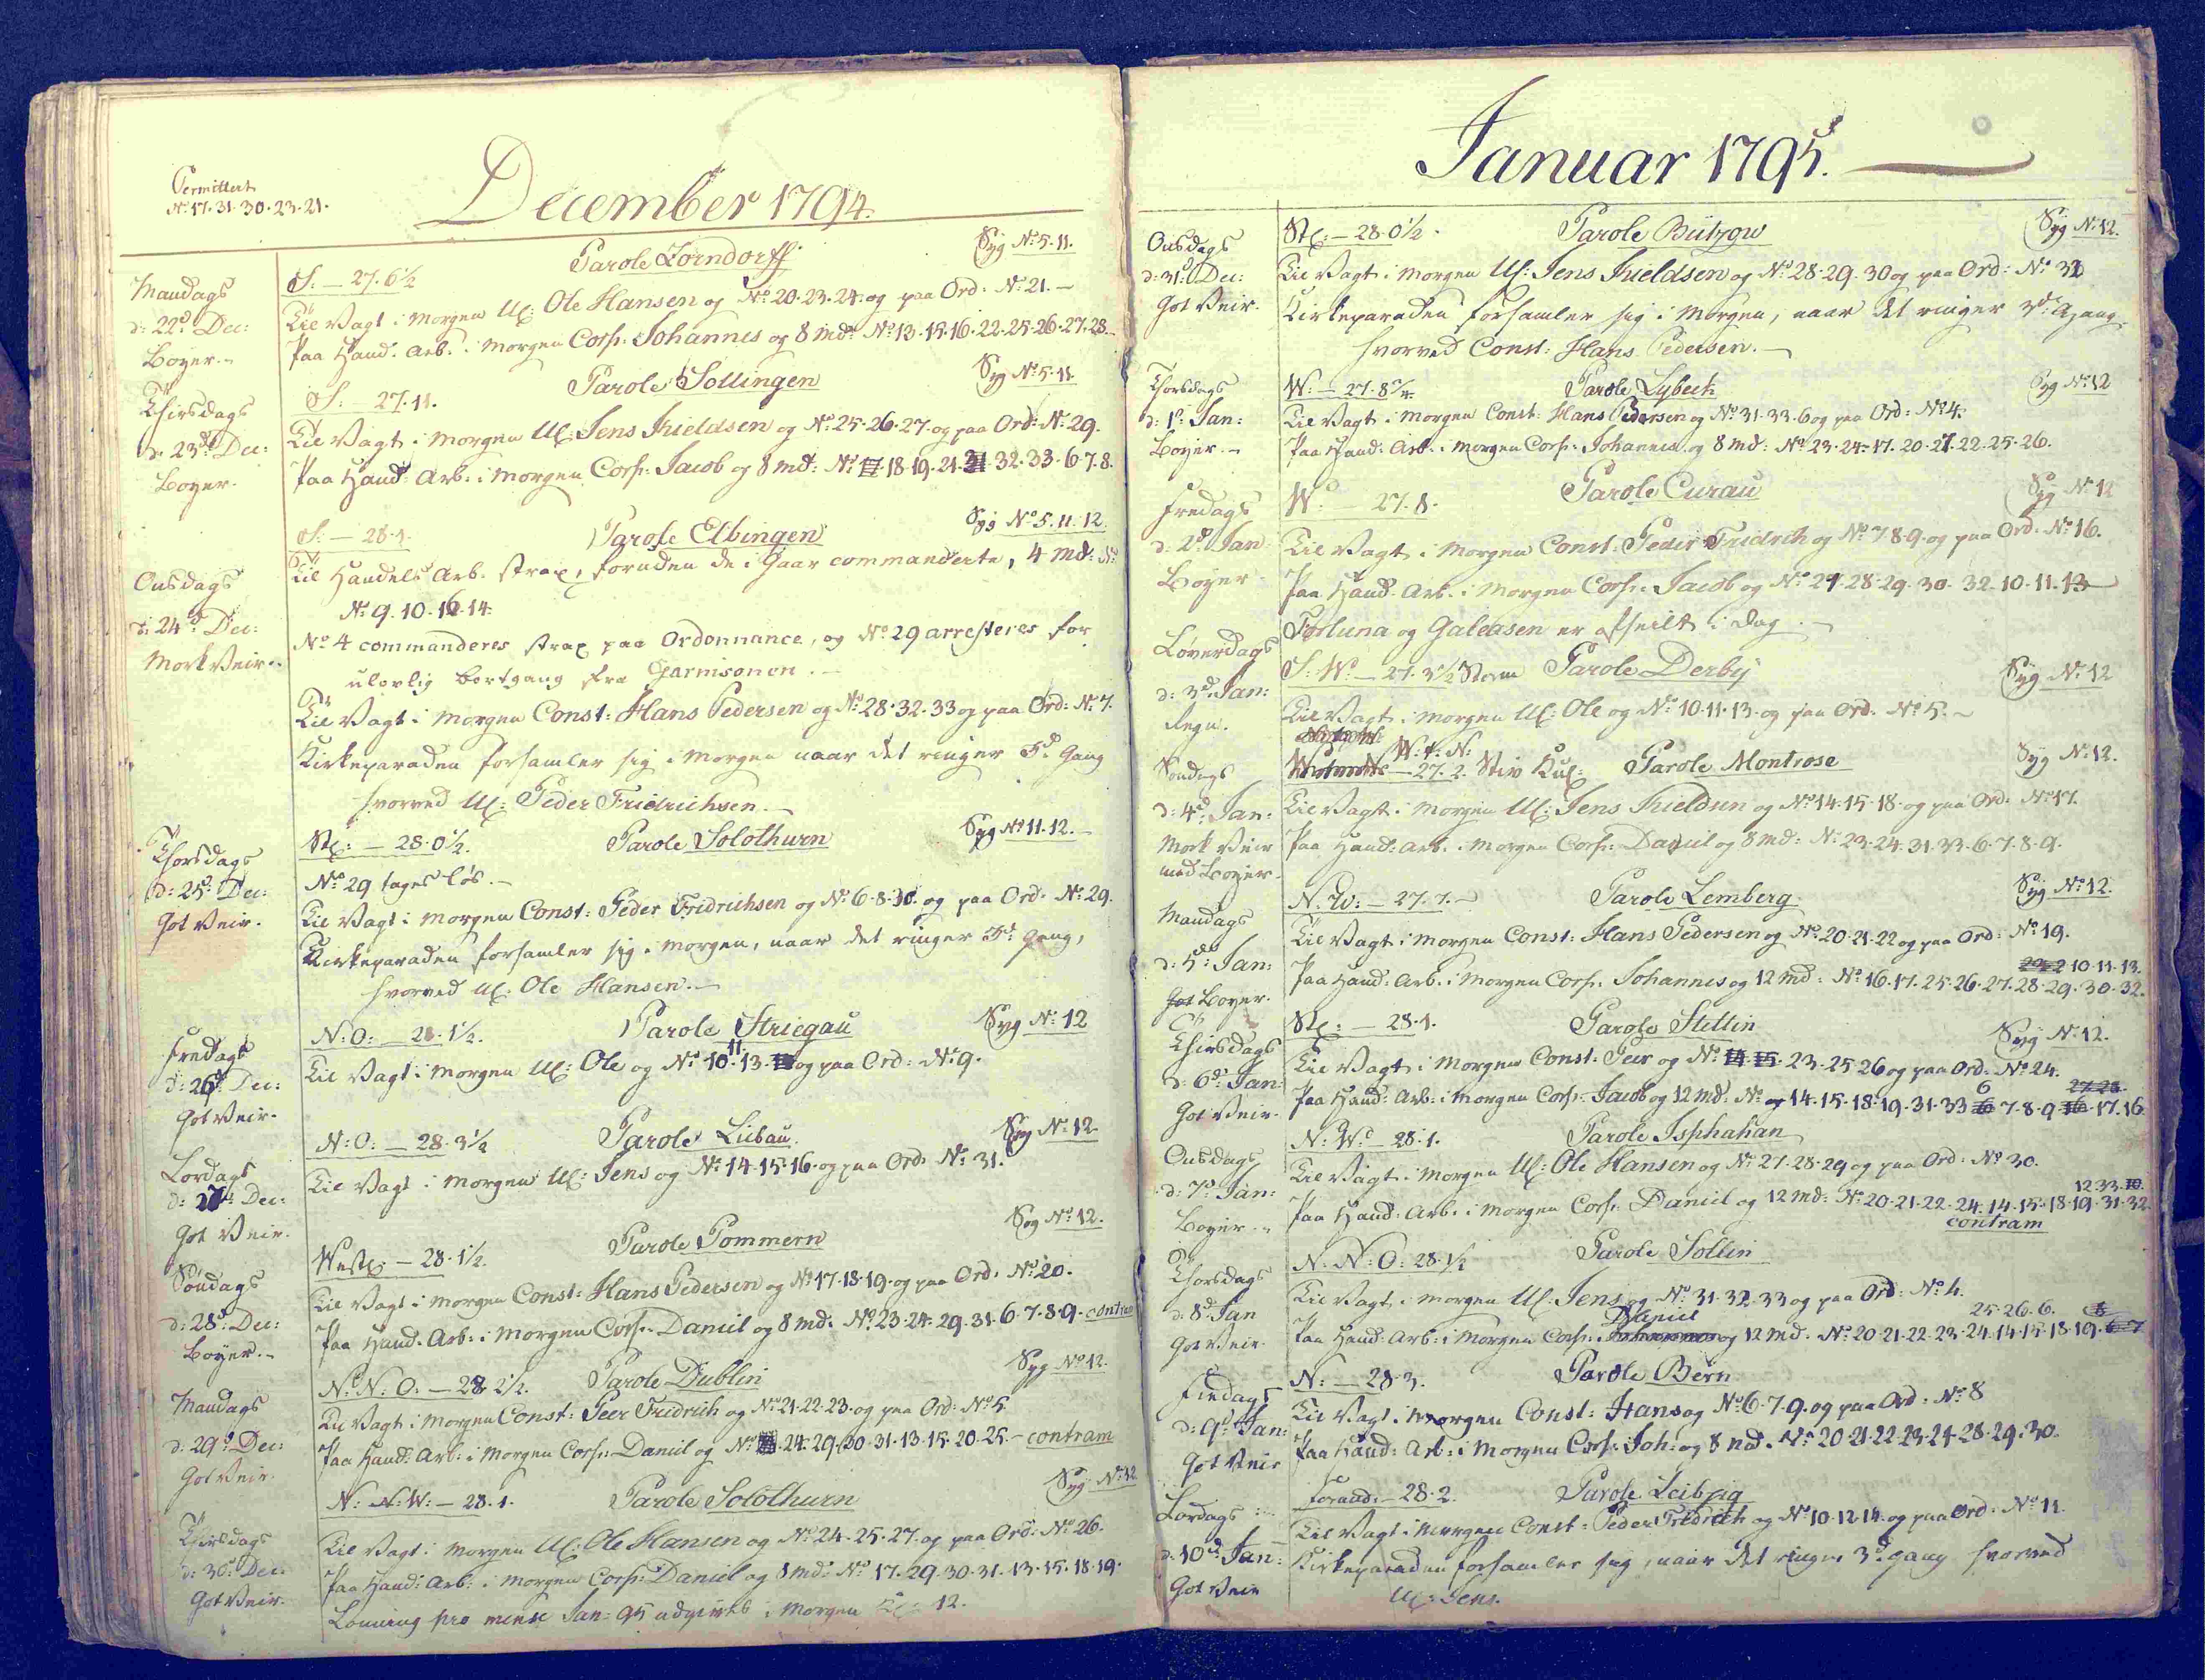 Permittert
No 17. 31. 30. 23. 21.
December 1794.
Mandags
d: 22d Dec:
Boyer.
S. — 27. 6½
Parole Zorndorff
Syg No 5. 11.
Til Vagt i Morgen Uf: Ole Hansen og No 20. 23. 24. og paa Ord: No 21. —
Paa Hand. Arb. i Morgen Corp: Johannes og 8 md: No 13. 15. 16. 22. 25. 26. 27. 28.
Thirsdags
d. 23d Dec:
Boyer.
S: — 27. 11.
Parole Sollingen
Syg No 5. 11.
Til Vagt i Morgen Uf: Jens Kieldsen og No 25. 26. 27. og paa Ord: No 29.
Paa Hand: Arb. i Morgen Corp: Jacob og 8 md: No 18. 19. 21. 32. 33. 6. 7. 8.
Onsdags
d: 24d Dec:
Mork Veir.
S: — 28. 1.
Parole Elbingen
Syg No 5. 11. 12.
Til Handels Arb. strax, foruden de i Gaar commanderte, 4 md: No
No 9. 10. 16. 14.
No 4 commanderes strax paa Ordonnance, og No 29 arresteres for
ulovlig bortgang fra Garnisonen. —
Til Vagt i Morgen Const: Hans Pedersen og No 28. 32. 33 og paa Ord: No 7.
Kirkeparaden forsamler sig i Morgen naar det ringer 3d Gang
hvorved Uf: Peder Fridrichsen. —
Thorsdags
d: 25d Dec:
Got Veir.
Stl: — 28. 0½.
Parole Solothurn
Syg No 11. 12. —
No 29 tages løs. —
Til Vagt i Morgen Const: Peder Fridrichsen og No 6. 8. 30. og paa Ord. No 29.
Kirkeparaden forsamler sig i Morgen, naar det ringer 3d Gang,
hvorved Uf. Ole Hansen. —
Fredags
d: 26d Dec:
Got Veir.
N: O: — 28. 1½.
Parole Striegau
Syg No 12
Til Vagt i Morgen Uf: Ole og No 10. 11. 13. og paa Ord: No 9.
Lordags
d: 27d Dec:
Got Veir.
N: O: — 28. 3½
Parole Libau
Syg No 12
Til Vagt i Morgen Uf: Jens og No 14. 15. 16. og paa Ord. No 31.
Søndags
d: 28d Dec:
Boyer. —
Westl — 28. 1½.
Parole Pommern
Syg No 12.
Til Vagt i Morgen Const: Hans Pedersen og No 17. 18. 19. og paa Ord. No 20.
Paa Hand. Arb: i Morgen Corp: Daniel og 8 md. No 23. 24. 29. 31. 6. 7. 8. 9. contram
Mandags
d: 29d Dec:
Got Veir.
N: N: O: — 28. 2½.
Parole Dublin
Syg No 12.
Til Vagt i Morgen Const: Peer Fridrich og No 21. 22. 23. og paa Ord: No 5
Paa Hand: Arb: i Morgen Corp: Daniel og No 24. 29. 30. 31. 13. 15. 20. 25. — contram
Thirsdags
d: 30d Dec:
Got Veir.
N: N: W: — 28. 1.
Parole Solothurn
Syg No 12
Til Vagt i Morgen Uf: Ole Hansen og No 24. 25. 27. og paa Ord: No 26.
Paa Hand: Arb: i Morgen Corp: Daniel og 8 md: No 17. 29. 30. 31. 13. 15. 18. 19.
Lønning pro mense Jan: 95 udgives i Morgen Kl: 12.
Januar 1795.
Onsdags
d: 31d Dec:
Got Veir.
Stl: — 28. 0½.
Parole Bützow
Syg No 12.
Til Vagt i Morgen Uf: Jens Kieldsen og No 28. 29. 30 og paa Ord: No 32
Kirkeparaden forsamler sig i Morgen, naar det ringer 3d Gang
hvorved Const: Hans Pedersen. —
Thorsdags
d: 1d Jan:
Boyer. —
W: — 27. 8¾
Parole Lybech
Syg No 12
Til Vagt i Morgen Const: Hans Pedersen og No 31. 33. 6 og paa Ord: No 4.
Paa Hand: Arb. i Morgen Corp: Johannes og 8 md: No 23. 24. 17. 20. 21. 22. 25. 26.
Fredags
d: 2d Jan
Boyer
W: — 27. 8.
Parole Curau
Syg No 12
Til Vagt i Morgen Const: Peder Fridrich og No 7. 8. 9. og paa Ord. No 16.
Paa Hand. Arb. i Morgen Corp: Jacob og No 27. 28. 29. 30. 32. 10. 11. 13
Fortuna og Galeasen er afseilt i Dag. —
Løverdags
d: 3d Jan:
Regn.
S: W: — 27. 3½ Storm
Parole Derby
Syg No 12
Til Vagt i Morgen Uf: Ole og No 10. 11. 13. og paa Ord. No 5. —
Søndags
d: 4d Jan:
Mork Veir
med Boyer.
W: t: N:
— 27. 2. Stiv Kul:
Parole Montrose
Syg No 12.
Til Vagt i Morgen Uf: Jens Kieldsen og No 14. 15. 18. og paa Ord. No 17.
Paa Hand: Arb. i Morgen Corp: Daniel og 8 md: No 23. 24. 31. 33. 6. 7. 8. 9.
Mandags
d: 5d Jan:
Got Boyer.
N: W: — 27. 7. —
Parole Lemberg
Syg No 12.
Til Vagt i Morgen Const: Hans Pedersen og No 20. 21. 22 og paa Ord: No 19.
10. 11. 13.
Paa Hand: Arb. i Morgen Corp: Johannes og 12 md: No 16. 17. 25. 26. 27. 28. 29. 30. 32.
Thirsdags
d: 6d Jan:
Got Veir.
Stl: — 28. 1.
Parole Stettin
Syg No 12.
Til Vagt i Morgen Const: Peer og No 14. 15. 23. 25. 26 og paa Ord: No 24.
6 27. 28.
Paa Hand: Arb: i Morgen Corp: Jacob og 12 md: No 14. 15. 18. 19. 31. 33 7. 8. 9. 17. 16
Onsdags
d: 7d Jan:
Boyer. —
N: W: — 28. 1.
Parole Isphahan
Til Vagt i Morgen Uf: Ole Hansen og No 27. 28. 29 og paa Ord: No 30.
12. 33. 10.
Paa Hand: Arb. i Morgen Corp: Daniel og 12 md: No 20. 21. 22. 24. 14. 15. 18. 19. 31. 32
contram
Thorsdags
d: 8d Jan
Got Veir
N: N: O: 28. ½
Parole Sollin
Til Vagt i Morgen Uf: Jens og No 31. 32. 33 og paa Ord: No 4.
Daniel 25. 26. 6. 8
Paa Hand: Arb: i Morgen Corp: Johannes og 12 md. No 20. 21. 22. 23. 24. 14. 15. 18. 19. 6. 7
Fredags
d: 9d Jan:
Got Veir
N: — 28. 3.
Parole Bern
Til Vagt i Morgen Const: Hans og No 6. 7. 9. og paa Ord: No 8
Paa Hand: Arb: i Morgen Corp: Joh: og 8 md. No 20. 21. 22. 23. 24. 28. 29. 30.
Lordags
d: 10d Jan:
Got Veir
Forand: — 28. 2.
Parole Leibzig
Til Vagt i Morgen Const: Peder Fridrich og No 10. 12. 14. og paa Ord: No 11.
Kirkeparaden forsamler sig, naar det ringer 3d Gang hvorved
Uf: Jens.